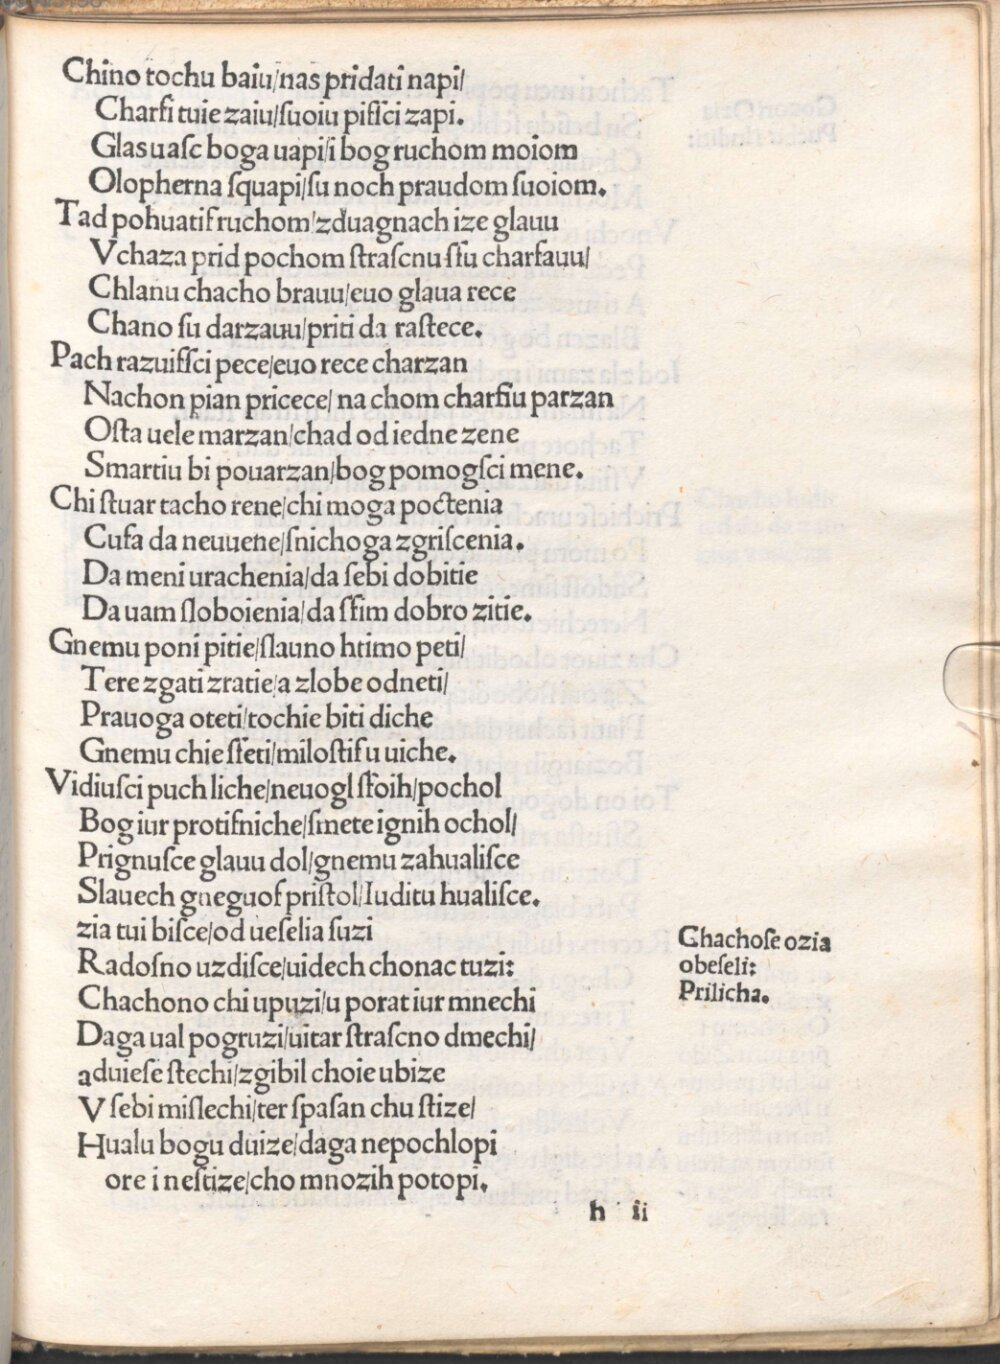 Chino tochu baiu/nas pridati napi/
Charſi tuie zaiu/ſuoiu piſſci zapi.
Glas uaſc boga uapi/i bog ruchom moiom
Olopherna ſquapi/ſu noch praudom ſuoiom.
Tad pohuatiſ ruchom/zduagnach ize glauu
Vchaza prid pochom ſtraſcnu ſſu charſauu/
Chlanu chacho brauu/euo glaua rece
Chano ſu darzauu/priti da raſtece.
Pach razuiſſci pece/euo rece charzan
Nachon pian pricece/na chom charſiu parzan
Oſta uele marzan/chad od iedne zene
Smartiu bi pouarzan/bog pomogſci mene.
Chi ſtuar tacho rene/chi moga poctenia
Cuſa da neuuene/ſnichoga zgriſcenia.
Da meni urachenia/da ſebi dobitie
Da uam ſloboienia/da ſſim dobro zitie.
Gnemu poni pitie/ſlauno htimo peti/
Tere zgati zratie/a zlobe odneti/
Prauoga oteti/tochie biti diche
Gnemu chie ſſeti/miloſtiſ u uiche.
Vidiuſci puch liche/neuogl ſſoih/pochol
Bog iur protiſniche/ſmete ignih ochol/
Prignuſce glauu dol/gnemu zahualiſce
Slauech gneguoſ priſtol/Iuditu hualiſce.
zia tui biſce/od ueſelia ſuzi
Radoſno uzdiſce/uidech chonac tuzi:
Chachono chi upuzi/u porat iur mnechi
Daga ual pogruzi/uitar ſtraſcno dmechi/
aduieſe ſtechi/zgibil choie ubize
V ſebi miſlechi/ter ſpaſan chu ſtize/
Hualu bogu duize/daga nepochlopi
ore i neſtize/cho mnozih potopi.
Chachoſe ozia
obeſeli:
Prilicha.
h ii